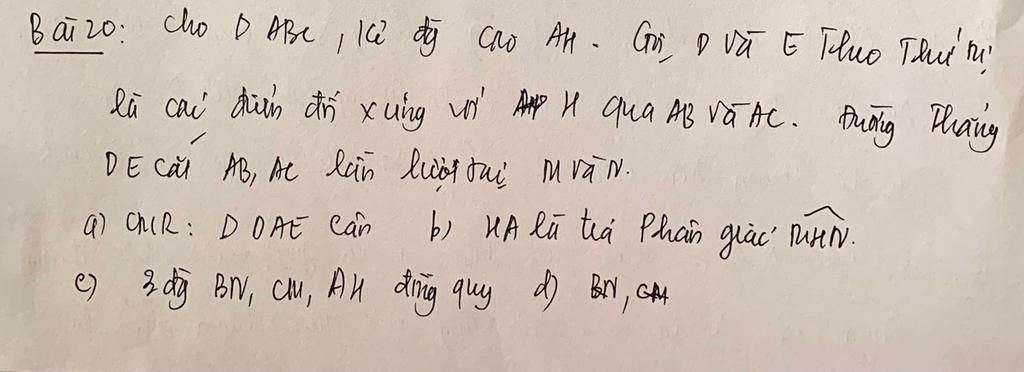 Bài 20: Cho Δ ABC, kẻ đg cao AH. Gọi D và E Theo Thứ tự
là các điểm đối xứng với H qua AB và AC. Đường Thẳng
DE cắt AB, AC lần lượt tại M và N.
a) CMR: Δ DAE cân b) HA là tia Phân giác MHN.
c) 3 đg BN, CM, AH đồng quy d) BN, CM